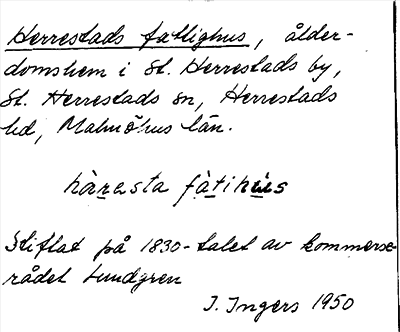 Herrestads fattighus, ålder-
domshem i St. Herrestads by,
St. Herrestads sn, Herrestads
hd, Malmöhus län.
hàresta fàtihùs
Stiftat på 1830-talet av kommerse-
rådet Lundgren
I. Ingers 1950